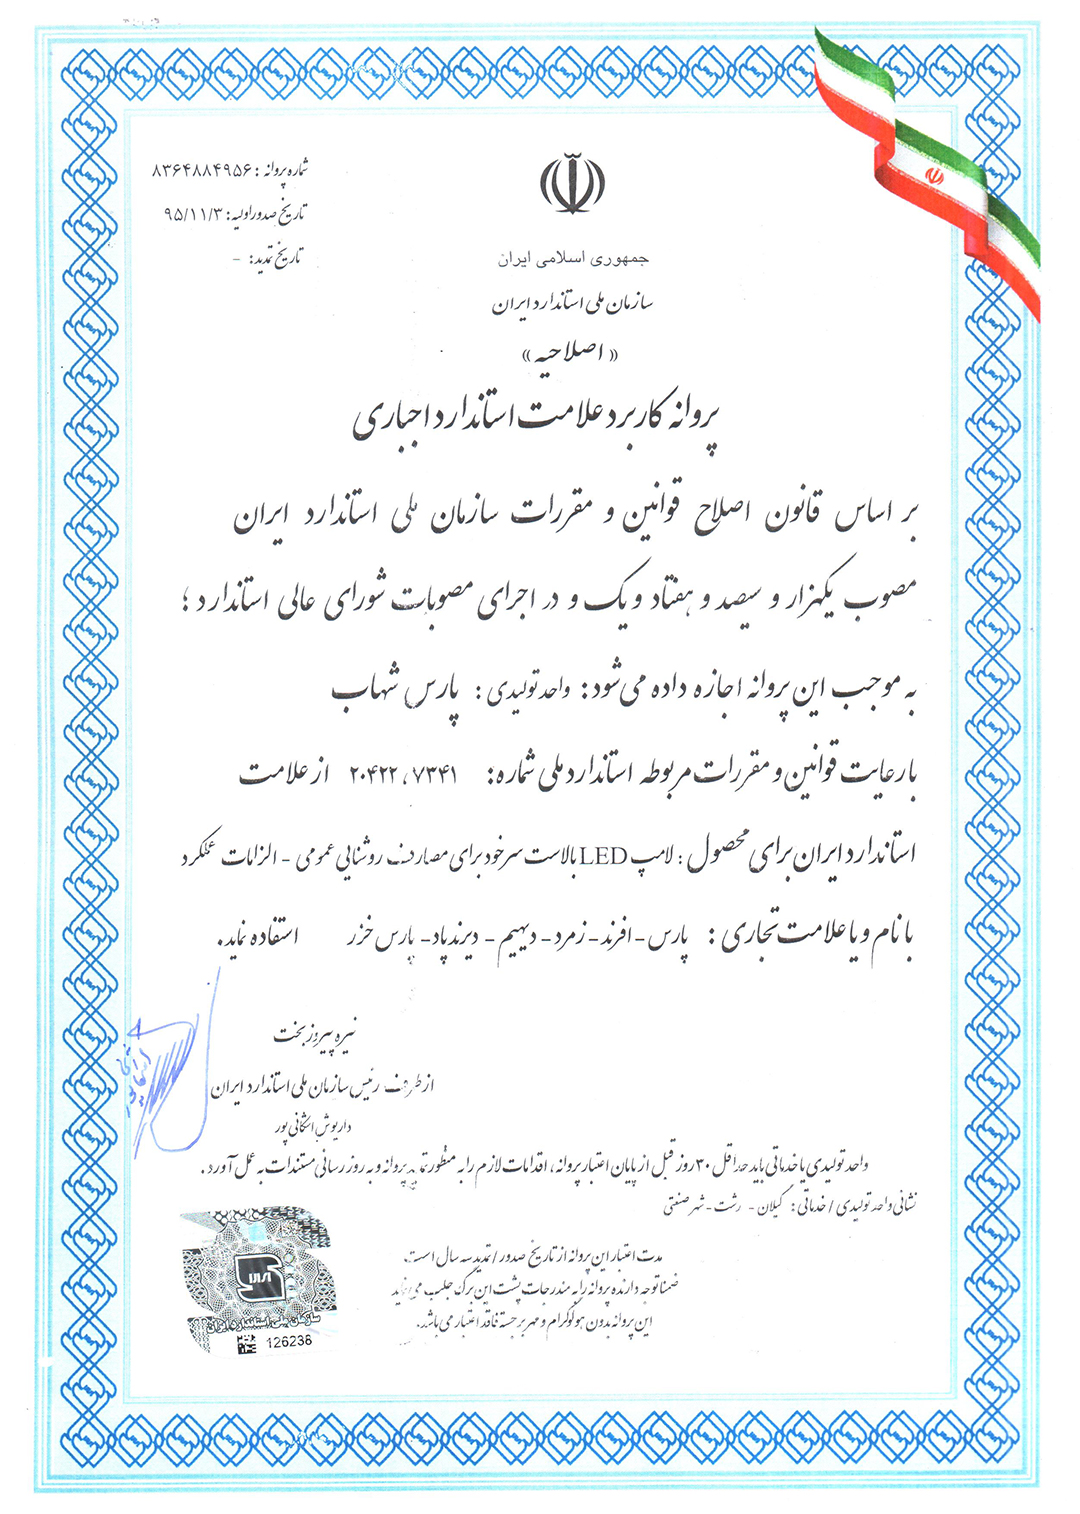 شماره پروانه : ۸۳۶۴۸۸۴۹۵۶
تاریخ صدور اولیه: ۹۵/۱۱/۳
تاریخ تمدید: -
جمهوری اسلامی ایران
سازمان ملی استاندارد ایران
« اصلاحیه »
پروانه کاربرد علامت استاندارد اجباری
بر اساس قانون اصلاح قوانین و مقررات سازمان ملی استاندارد ایران
مصوب یکهزار و سیصد و هفتاد و یک و در اجرای مصوبات شورای عالی استاندارد ؛
به موجب این پروانه اجازه داده می‌شود: واحد تولیدی : پارس شهاب
با رعایت قوانین و مقررات مربوطه استاندارد ملی شماره: ۷۳۴۱ ، ۲۰۴۲۲ از علامت
استاندارد ایران برای محصول : لامپ LED بالاست سرخود برای مصارف روشنایی عمومی - الزامات عملکرد
با نام و یا علامت تجاری : پارس - افرند - زمرد - دیهیم - دیرند پاد - پارس خزر استفاده نماید.
نیره پیروزبخت
از طرف رئیس سازمان ملی استاندارد ایران
داریوش اتحادی پور
واحد تولیدی یا خدماتی باید حداقل ۳۰ روز قبل از پایان اعتبار پروانه، اقدامات لازم را به منظور تمدید پروانه و به روز رسانی مستندات به عمل آورد.
نشانی واحد تولیدی / خدماتی : گیلان - رشت - شهر صنعتی
مدت اعتبار این پروانه از تاریخ صدور / تمدید سه سال است.
ضمنا توجه دارنده پروانه را به مندرجات پشت این برگ جلب می نماید
این پروانه بدون هولوگرام و مهر برجسته فاقد اعتبار می باشد.
سازمان ملی استاندارد ایران
126238